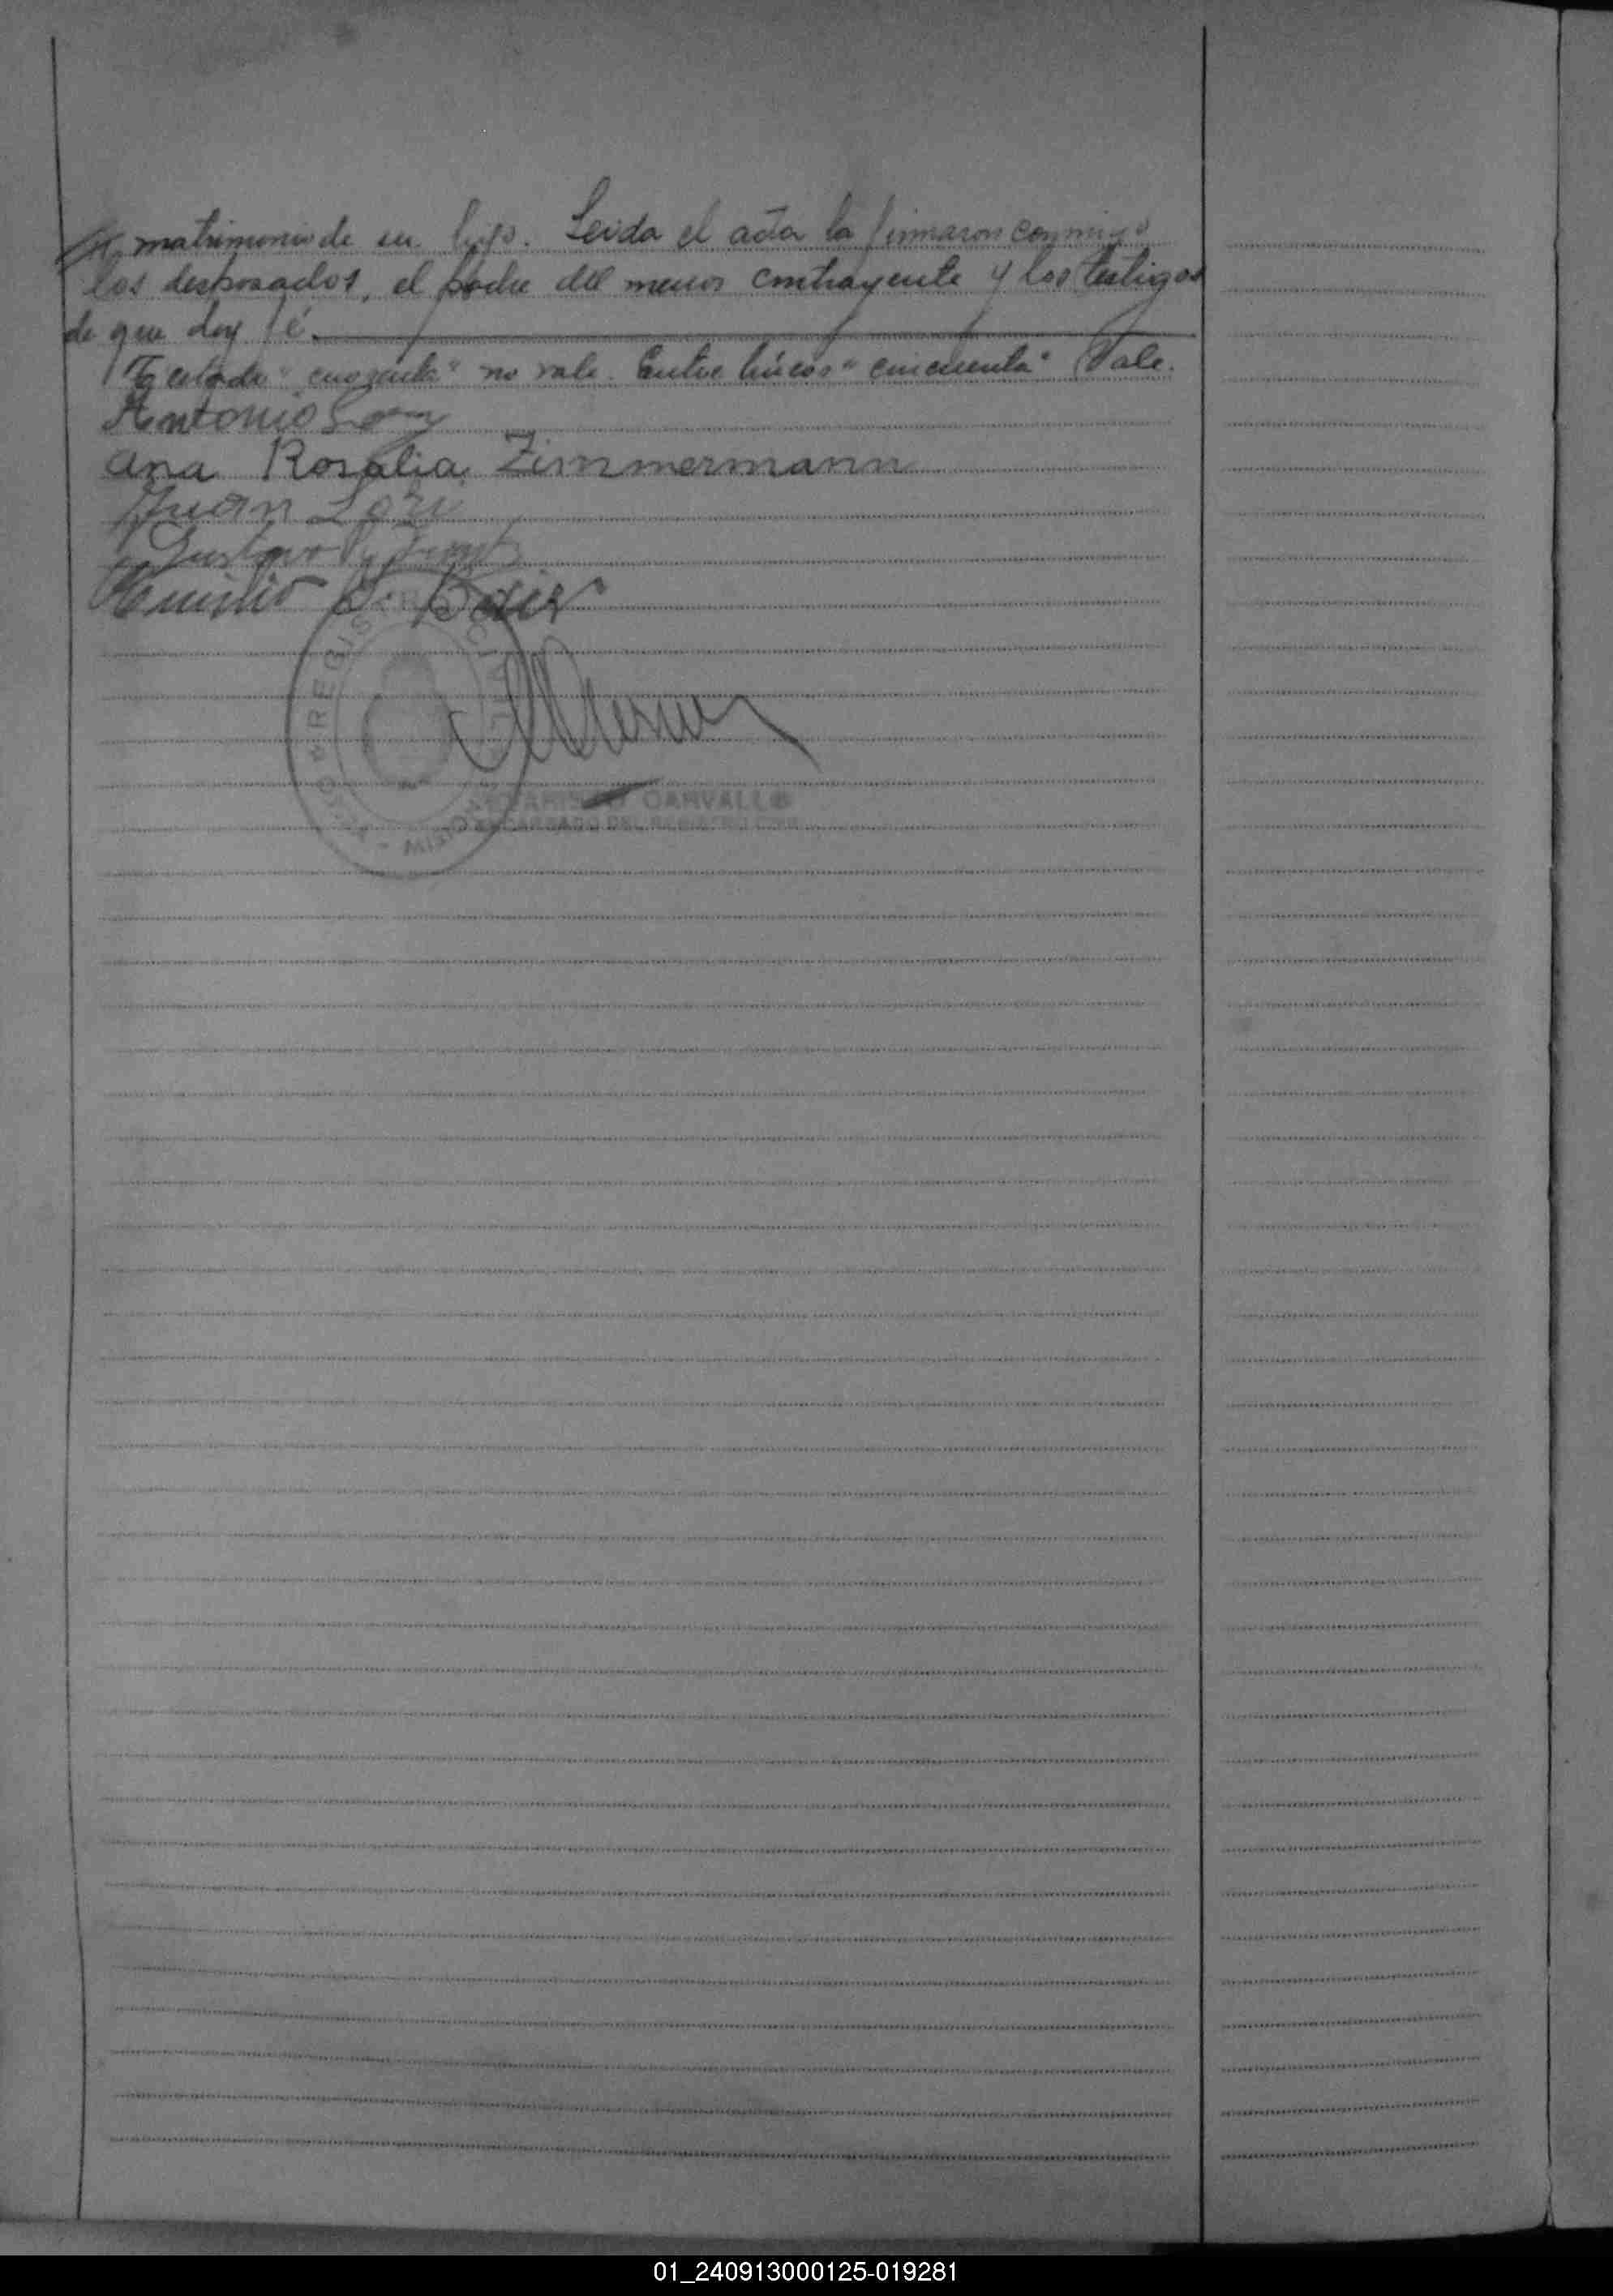 matrimonio de su hijo. Leida el acta la firmaron conmigo
los desposados, el padre del menor contrayente y los testigos
de que doy fé.
Testado "cuarenta" no vale. Entre líneas "cincuenta" Vale.
Antonio
Ana Rosalia Zimmermann
Juan
Gustavo
REGISTRO
CARVALLO
ENCARGADO DEL REGISTRO CIVIL
01_240913000125-019281